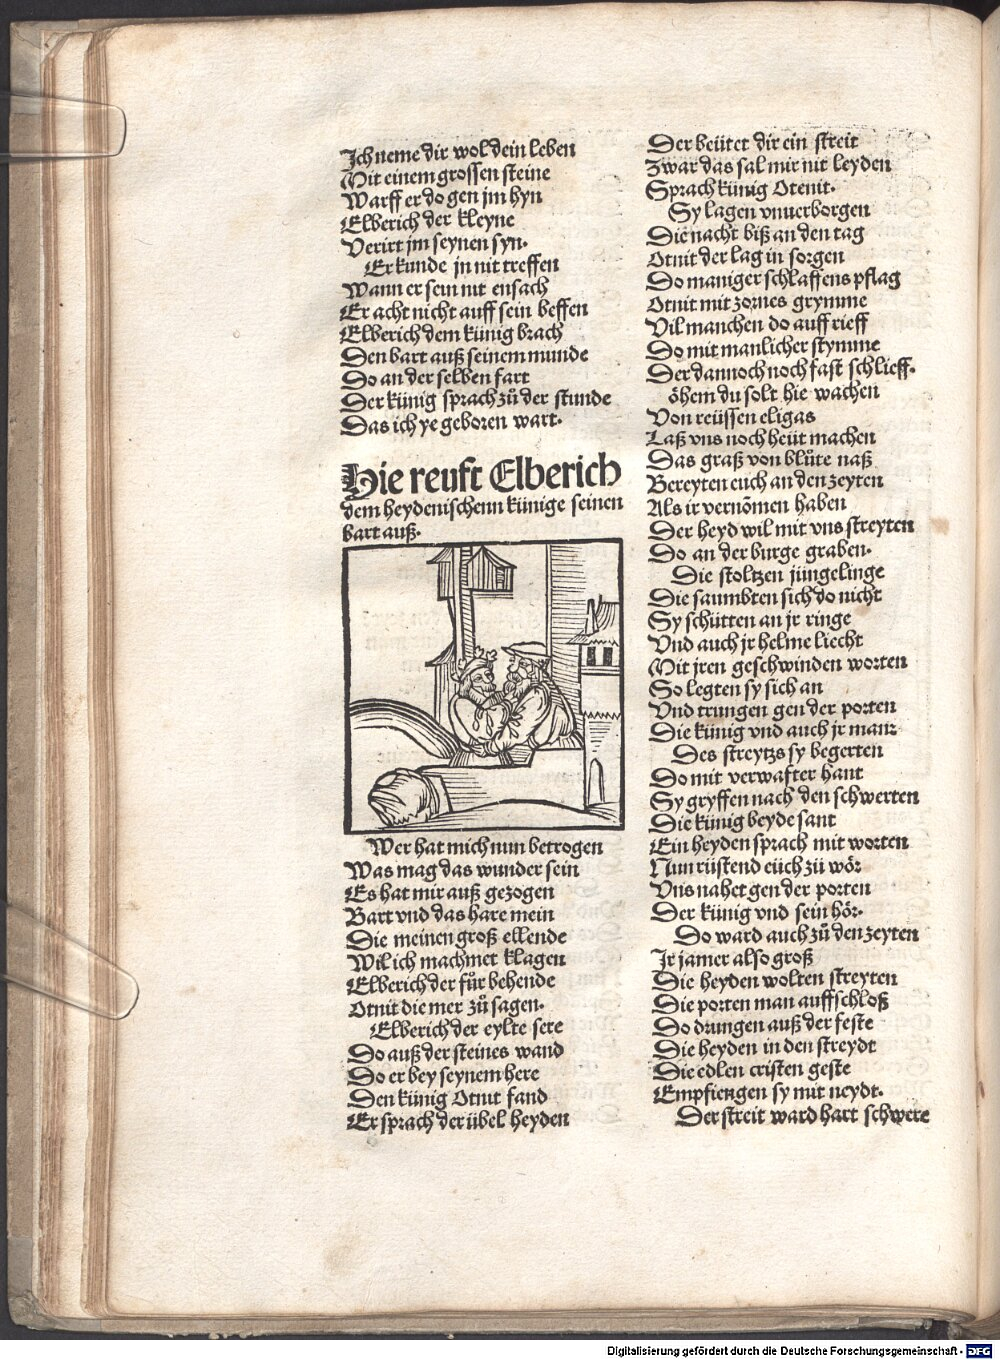 Ich neme dir wol dein leben
Mit einem grossen steine
Warff er do gen jm hyn
Elberich der kleyne
Verirt jm seynen syn.
Er kunde jn nit treffen
Wann er sein nit ensach
Er acht nicht auff sein beffen
Elberich dem künig brach
Den bart auß seinem munde
Do an der selben fart
Der künig sprach zů der stunde
Das ich ye geboren wart.
Hie reuft Elberich
dem heydenischenn künige seinen
bart auß.
Wer hat mich nun betrogen
Was mag das wunder sein
Es hat mir auß gezogen
Bart vnd das hare mein
Die meinen groß ellende
Wil ich machmet klagen
Elberich der für behende
Otnit die mer zů sagen.
Elberich der eylte sere
Do auß der steines wand
Do er bey seynem here
Den künig Otnit fand
Er sprach der übel heyden
Der beütet dir ein streit
Zwar das sal mir nit leyden
Sprach künig Otenit.
Sy lagen vnuerborgen
Die nacht biß an den tag
Otnit der lag in sorgen
Do maniger schlaffens pflag
Otnit mit zornes grymme
Vil manchen do auff rieff
Do mit manlicher stymme
Der dannoch noch fast schlieff.
öhem du solt hie wachen
Von reüssen eligas
Laß vns noch heüt machen
Das graß von blůte naß
Bereyten euch an den zeyten
Als ir vernōmen haben
Der heyd wil mit vns streyten
Do an der burge graben.
Die stoltzen jüngelinge
Die saumbten sich do nicht
Sy schütten an jr ringe
Vnd auch jr helme liecht
Mit jren geschwinden worten
So legten sy sich an
Vnd trungen gen der porten
Die künig vnd auch jr man
Des streytzs sy begerten
Do mit verwafter hant
Sy gryffen nach den schwerten
Die künig beyde sant
Ein heyden sprach mit worten
Nun rüstend eüch zů wör
Vns nahet gen der porten
Der künig vnd sein hör.
Do ward auch zů den zeyten
Ir jamer also groß
Die heyden wolten streyten
Die porten man auffschloß
Do drungen auß der feste
Die heyden in den streydt
Die edlen cristen geste
Empfiengen sy mit neydt.
Der streit ward hart schwere
Digitalisierung gefördert durch die Deutsche Forschungsgemeinschaft - DFG